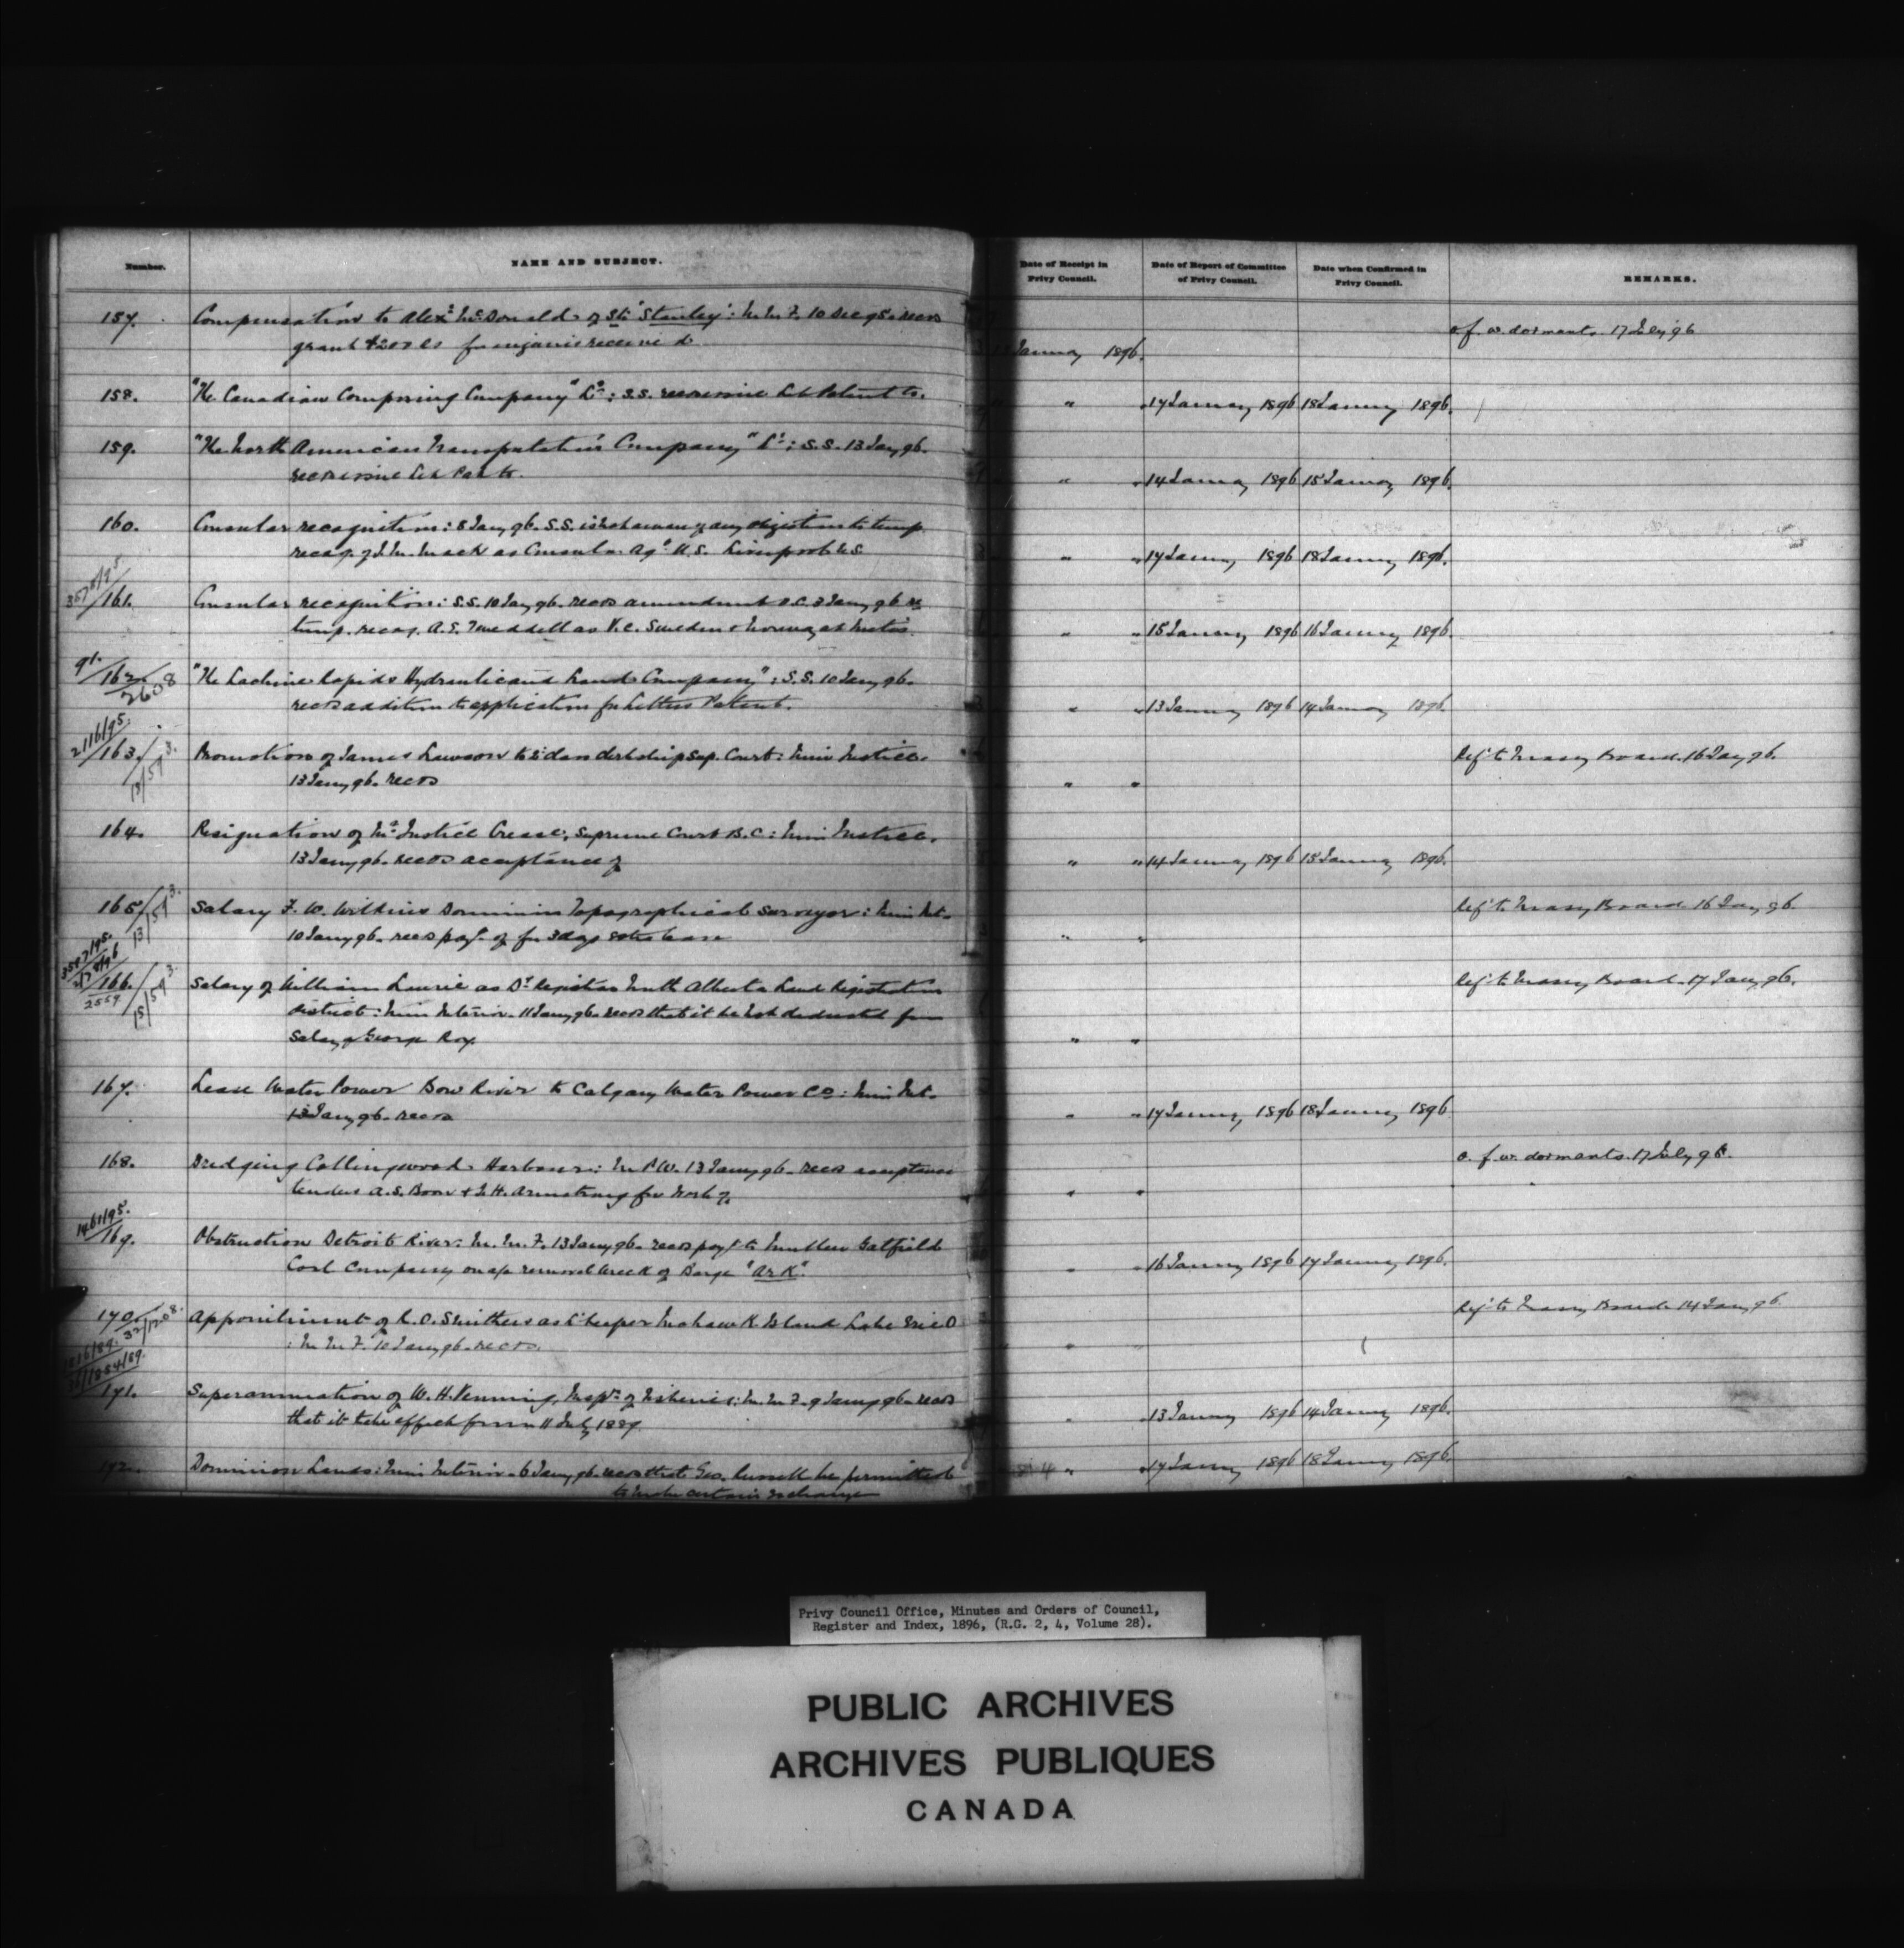 Number.
NAME AND SUBJECT.
Date of Receipt in Privy Council.
Date of Report of Committee of Privy Council.
Date when Confirmed in Privy Council.
REMARKS.
157. Compensation to Alexr McDonald of Str "Stanley": M.M.F. 10 Dec 95. recos
grant $200 as for injuries received
January 1896.
o.f.w. dormants. 17 July 96
158. "The Canadian Composing Company" Ld: S.S. recos issue Let Patent to.
" " 17 January 1896 18 January 1896.
159. "The North American Transportation Company" Ld: S.S. 13 Jany 96.
recos issue Let Pat to.
" " 14 January 1896 15 January 1896.
160. Consular recognition: 8 Jany 96. S.S. is not aware of any objection to temp.
recog. of J.M. Mack as Consular Agt U.S. Liverpool N.S.
" " 17 January 1896 18 January 1896.
161. Consular recognition: S.S. 10 Jany 96. recos amendment O.C. 3 Jany 96 re
temp. recog. A.S. Tweddell as V.C. Sweden & Norway at Metis.
" " 15 January 1896 16 January 1896.
91.
162.
2608
"The Lachine Rapids Hydraulic and Land Company": S.S. 10 Jany 96.
recos addition to application for Letters Patent.
" " 13 January 1896 14 January 1896.
2116/95.
163.
Promotion of James Lawson to 2d class clerkship Sup. Court: Min Justice.
13 Jany 96. recos
" "
Ref to Treasy Board. 16 Jany 96.
164. Resignation of Mr Justice Crease, Supreme Court B.C: Min Justice.
13 Jany 96. recos acceptance of
" " 14 January 1896 15 January 1896.
165. Salary F.W. Wilkins Dominion Topographical Surveyor: Min Int.
10 Jany 96. recos payt of for 3 days
" "
Ref to Treasy Board. 16 Jany 96.
166.
2559.
Salary of William Laurie as Dy Registrar North Alberta Land Registration
district: Min Interior. 11 Jany 96. recos that it be not deducted from
Salary of George Roy.
" "
Ref to Treasy Board. 17 Jany 96.
167. Lease Water Power Bow River to Calgary Water Power Co: Min Int.
13 Jany 96. recos
" " 17 January 1896 18 January 1896
168. Dredging Collingwood Harbour: M.P.W. 13 Jany 96. recos acceptance
tenders A.S. Boon & J.H. Armstrong for work of.
" "
o.f.w. dormants. 17 July 96.
1461/95.
169. Obstruction Detroit River: M.M.F. 13 Jany 96. recos payt to Mullen Gatfield
Coal Company on a/c removal wreck of Barge "Ark".
" " 16 January 1896 17 January 1896.
170. Appointment of R.O. Smithers as L't keeper Mohawk Island Lake Erie O
: M.M.F. 10 Jany 96. recos.
" "
Ref to Treasy Board 14 Jany 96.
171. Superannuation of W.H. Venning, Inspr of Fisheries: M.M.F. 9 Jany 96. recos
that it take effect from 11 July 1889.
" 13 January 1896 14 January 1896.
172. Dominion Lands: Min Interior. 6 Jany 96. recos that Geo. Russell be permitted
to make certain exchange
" 17 January 1896 18 January 1896.
Privy Council Office, Minutes and Orders of Council,
Register and Index, 1896, (R.G. 2, 4, Volume 28).
PUBLIC ARCHIVES
ARCHIVES PUBLIQUES
CANADA